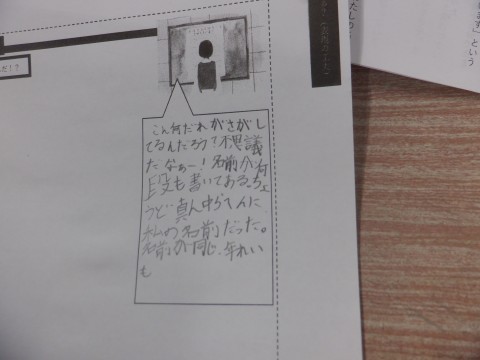 こん何だれがさがし
てるんだろう?不思議
だなぁー!名前が何
段も書いてある。ちょ
うど真ん中らへんに
私の名前だった。
名前が同じ、年れい
も
だ!?
ます」という